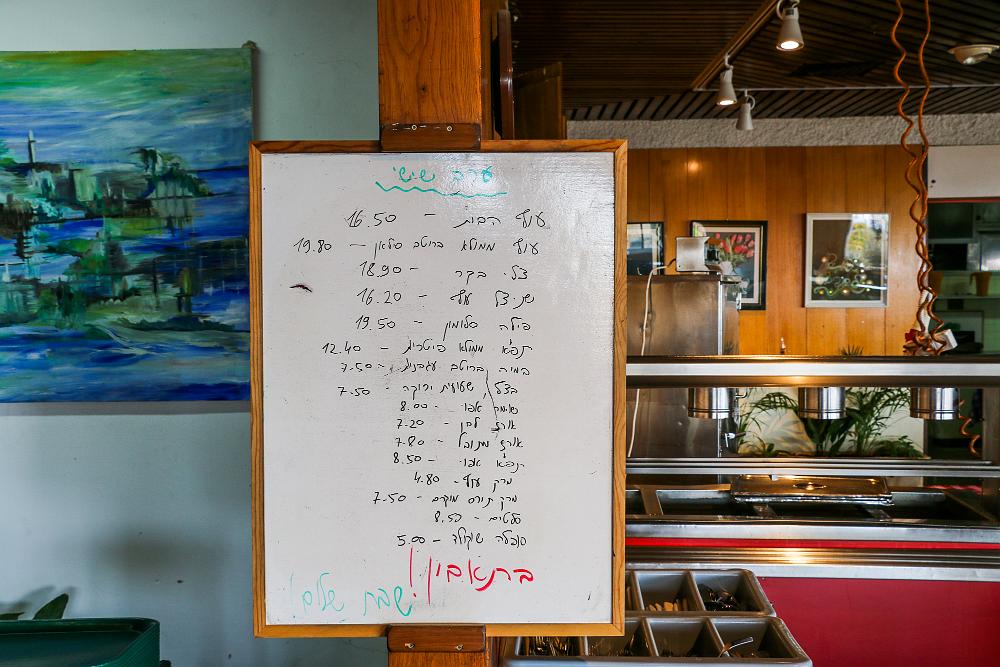 ערב שישי
עוף הבית - 16.50
עוף ממולא ברוטב סילאן - 19.80
צלי בקר - 18.90
שניצל עוף - 16.20
פילה סלומון - 19.50
תפו"א ממולא פיטריות - 12.40
במיה ברוטב עגבניות - 7.50
בצל, שעועית ירוקה - 7.50
שומר אפוי - 8.00
אורז לבן - 7.20
אורז מתובל - 7.80
תפו"א אפוי - 8.50
מרק עוף - 4.80
מרק תירס מוקרם - 7.50
סלטים - 8.50
סופלה שוקולד - 5.00
בתאבון!!
שבת שלום!